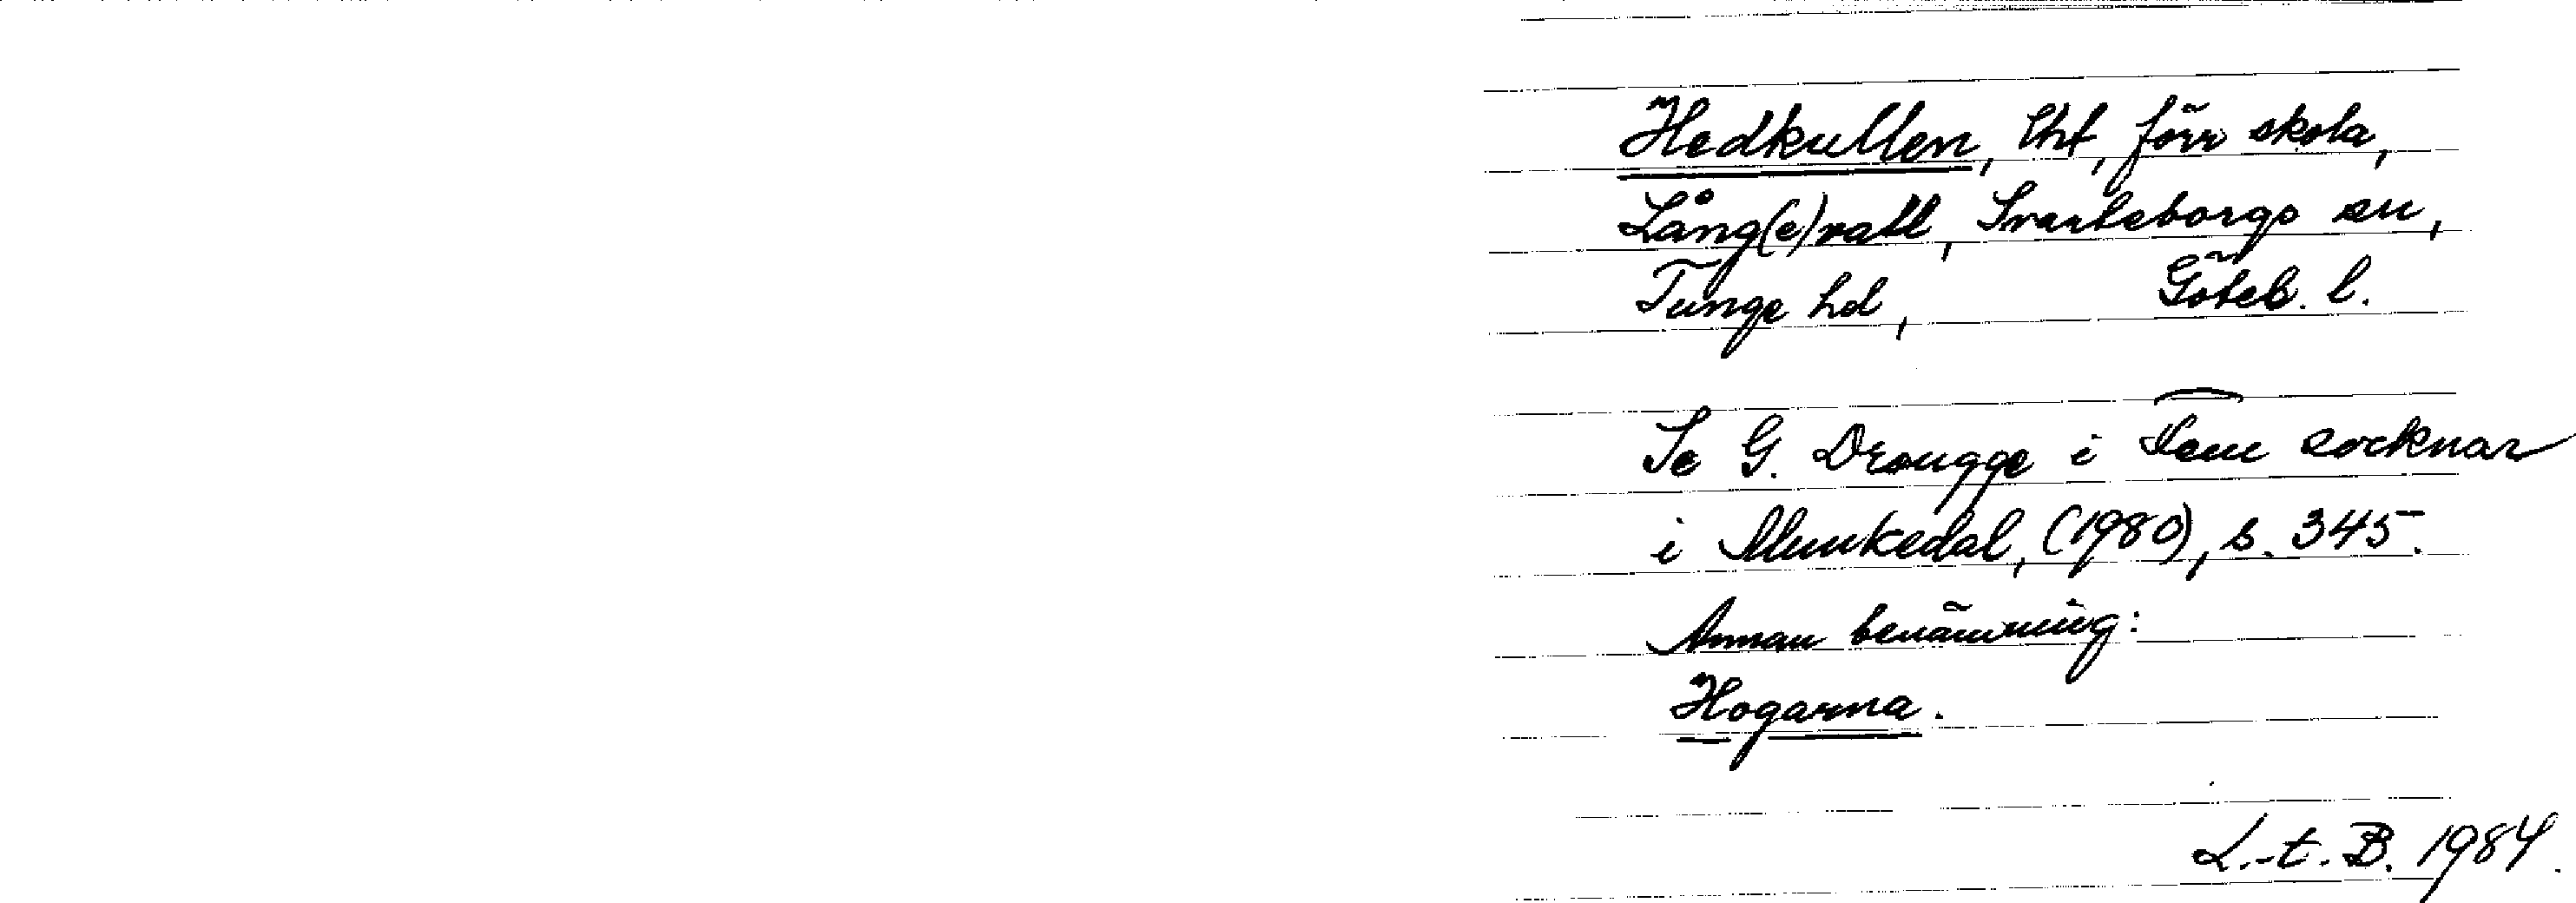 Hedkullen, lht, förr skola,
Lång(e)vall, Svarteborgs sn,
Tunge hd, Göteb. l.
Se G. Drougge i Fem socknar
i Munkedal, (1980), s. 345.
Annan benämning:
Hogarna.
L.-t. B. 1984.